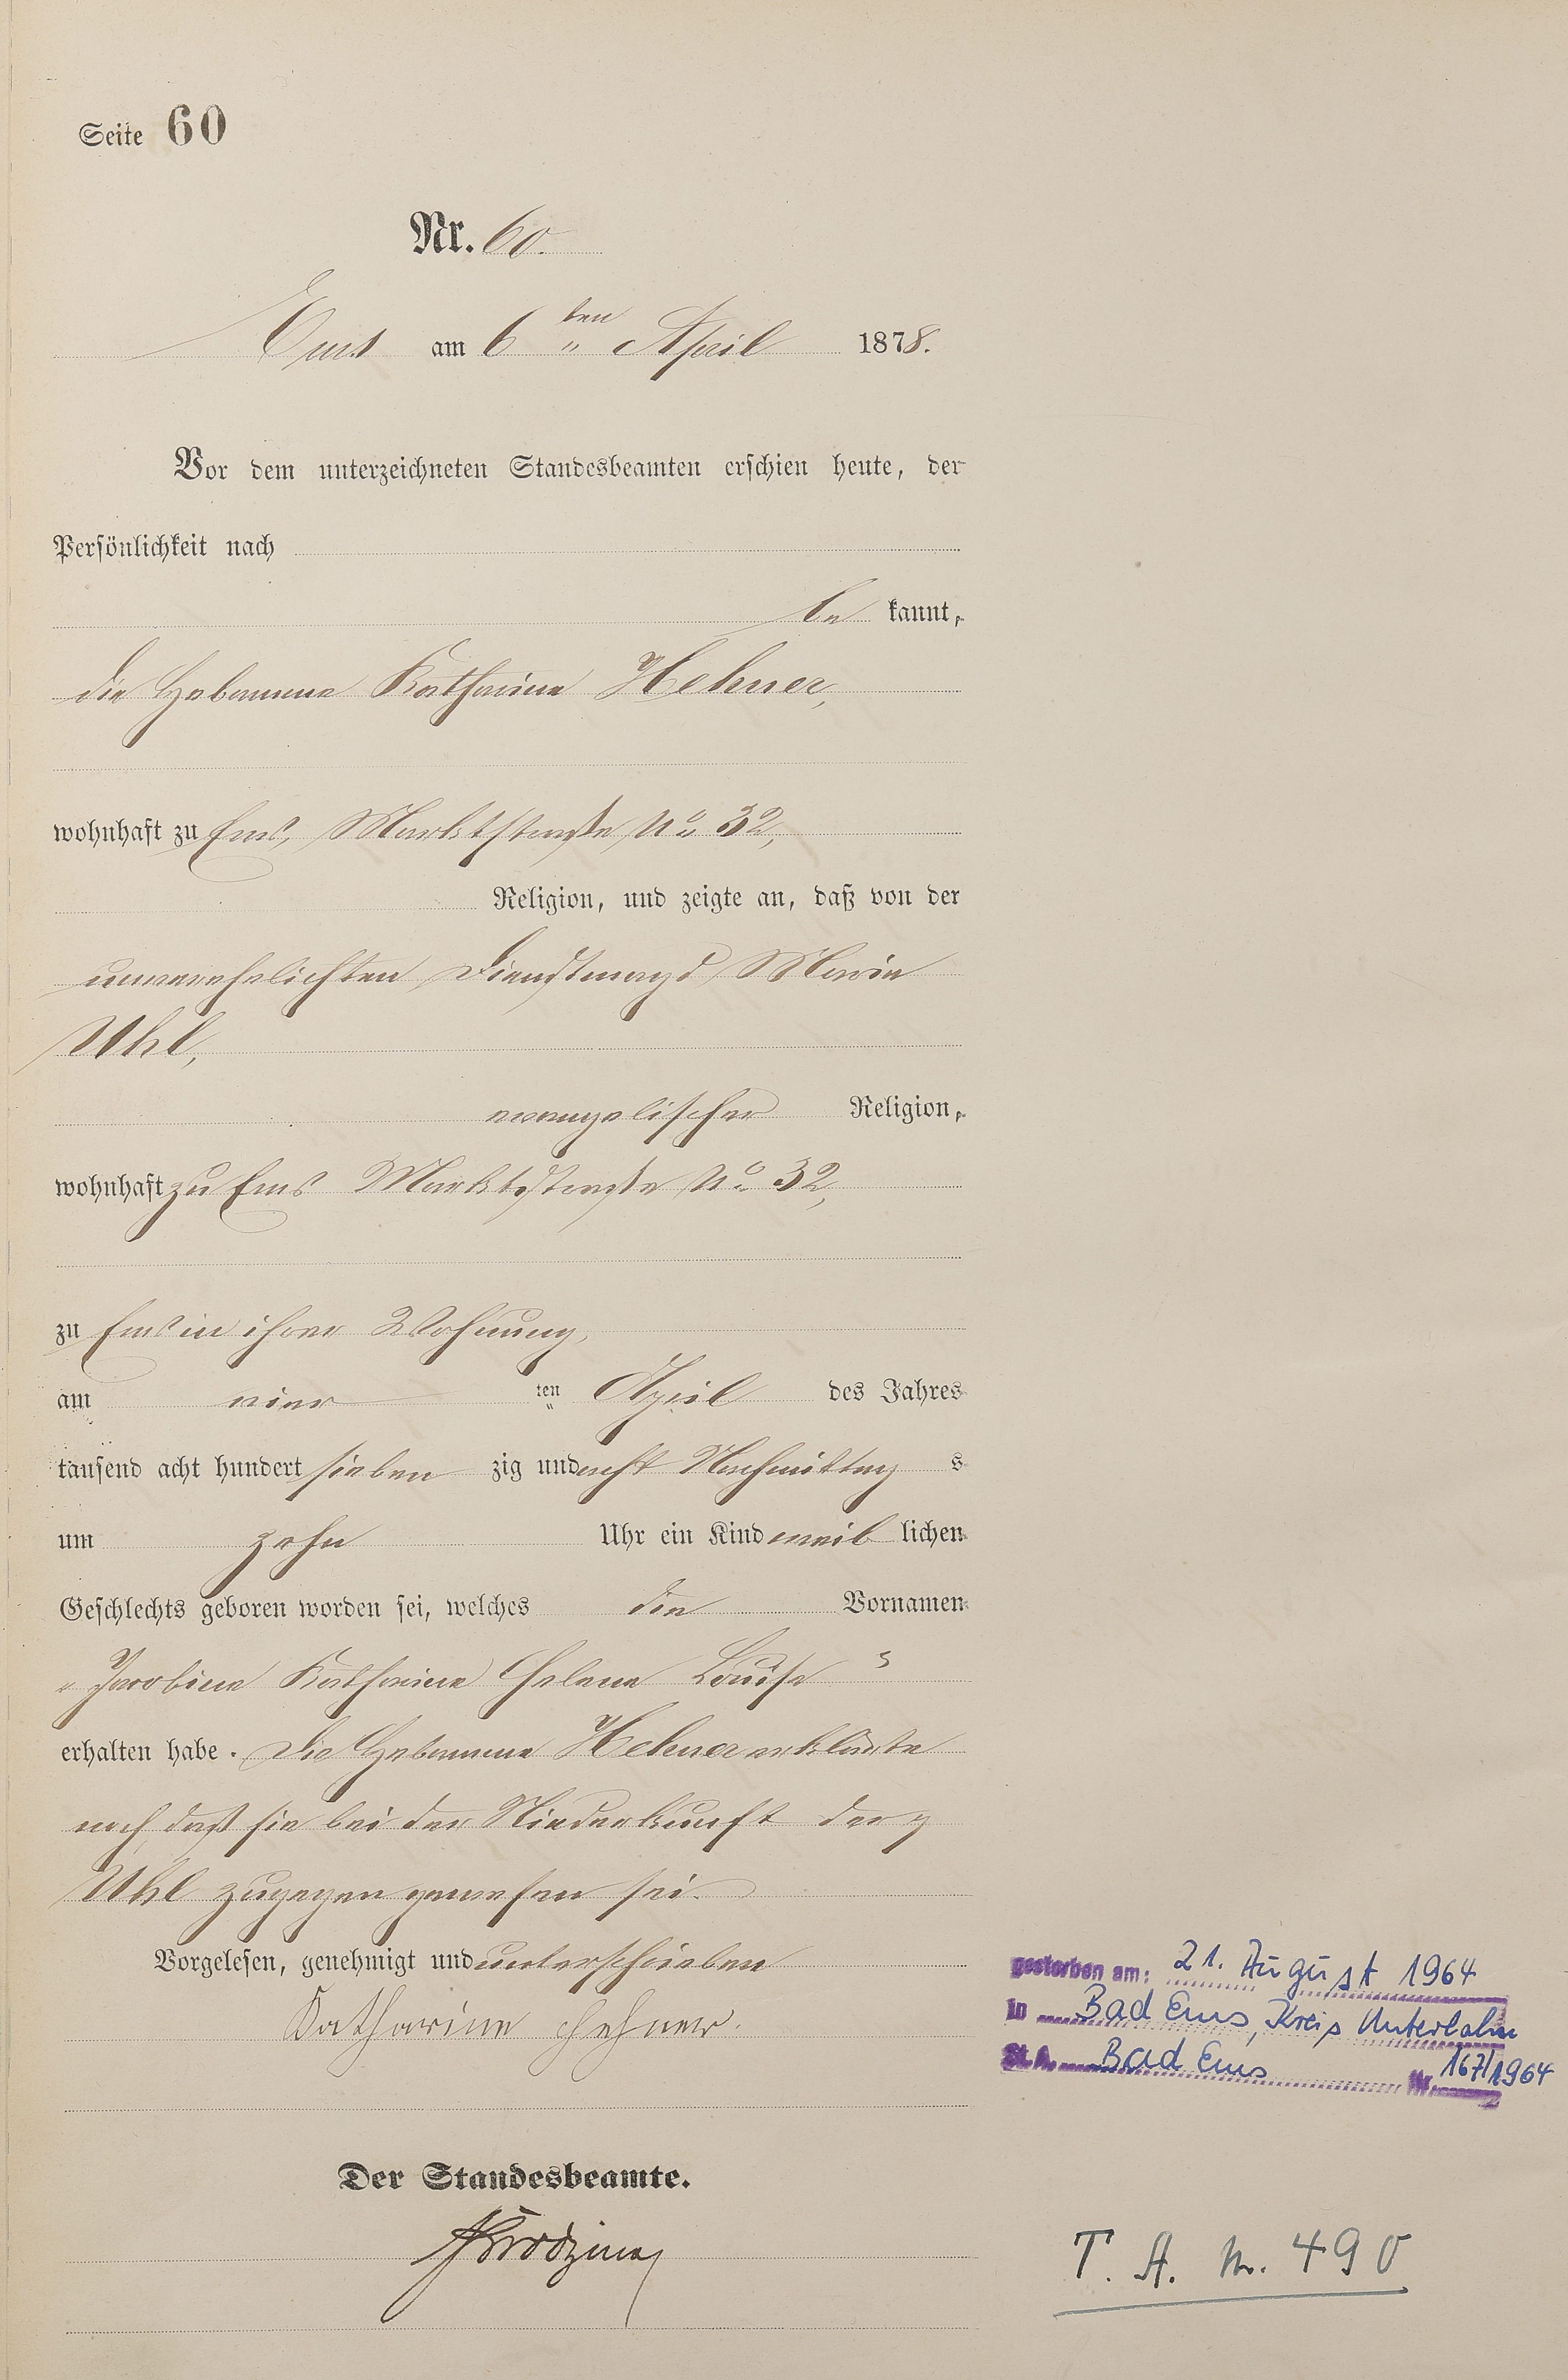 Seite 60
Nr. 60.
Ems am 6ten April 1878.
Vor dem unterzeichneten Standesbeamten erschien heute, der
Persönlichkeit nach
be kannt,
die Hebamme Katharina Hehner,
wohnhaft zu Ems, Marktstraße No 32,
Religion, und zeigte an, daß von der
unverehelichten Dienstmagd Marie
Uhl,
evangelischer Religion,
wohnhaft zu Ems Marktstraße No 32,
zu Ems in ihrer Wohnung,
am vier ten April des Jahres
tausend acht hundert sieben zig und acht Nachmittag s
um zehn Uhr ein Kind weib lichen
Geschlechts geboren worden sei, welches die Vornamen
„Jacobine Katharine Helene Louise"
erhalten habe. Die Hebamme Hehner erklärte
noch daß sie bei der Niederkunft der
Uhl zugegen gewesen sei.
Vorgelesen, genehmigt und unterschrieben
Katharina Hehner.
Der Standesbeamte.
gestorben am: 21. August 1964
in Bad Ems, Kreis Unterlahn
St.A. Bad Ems Nr. 167/1964
T. A. Nr. 490